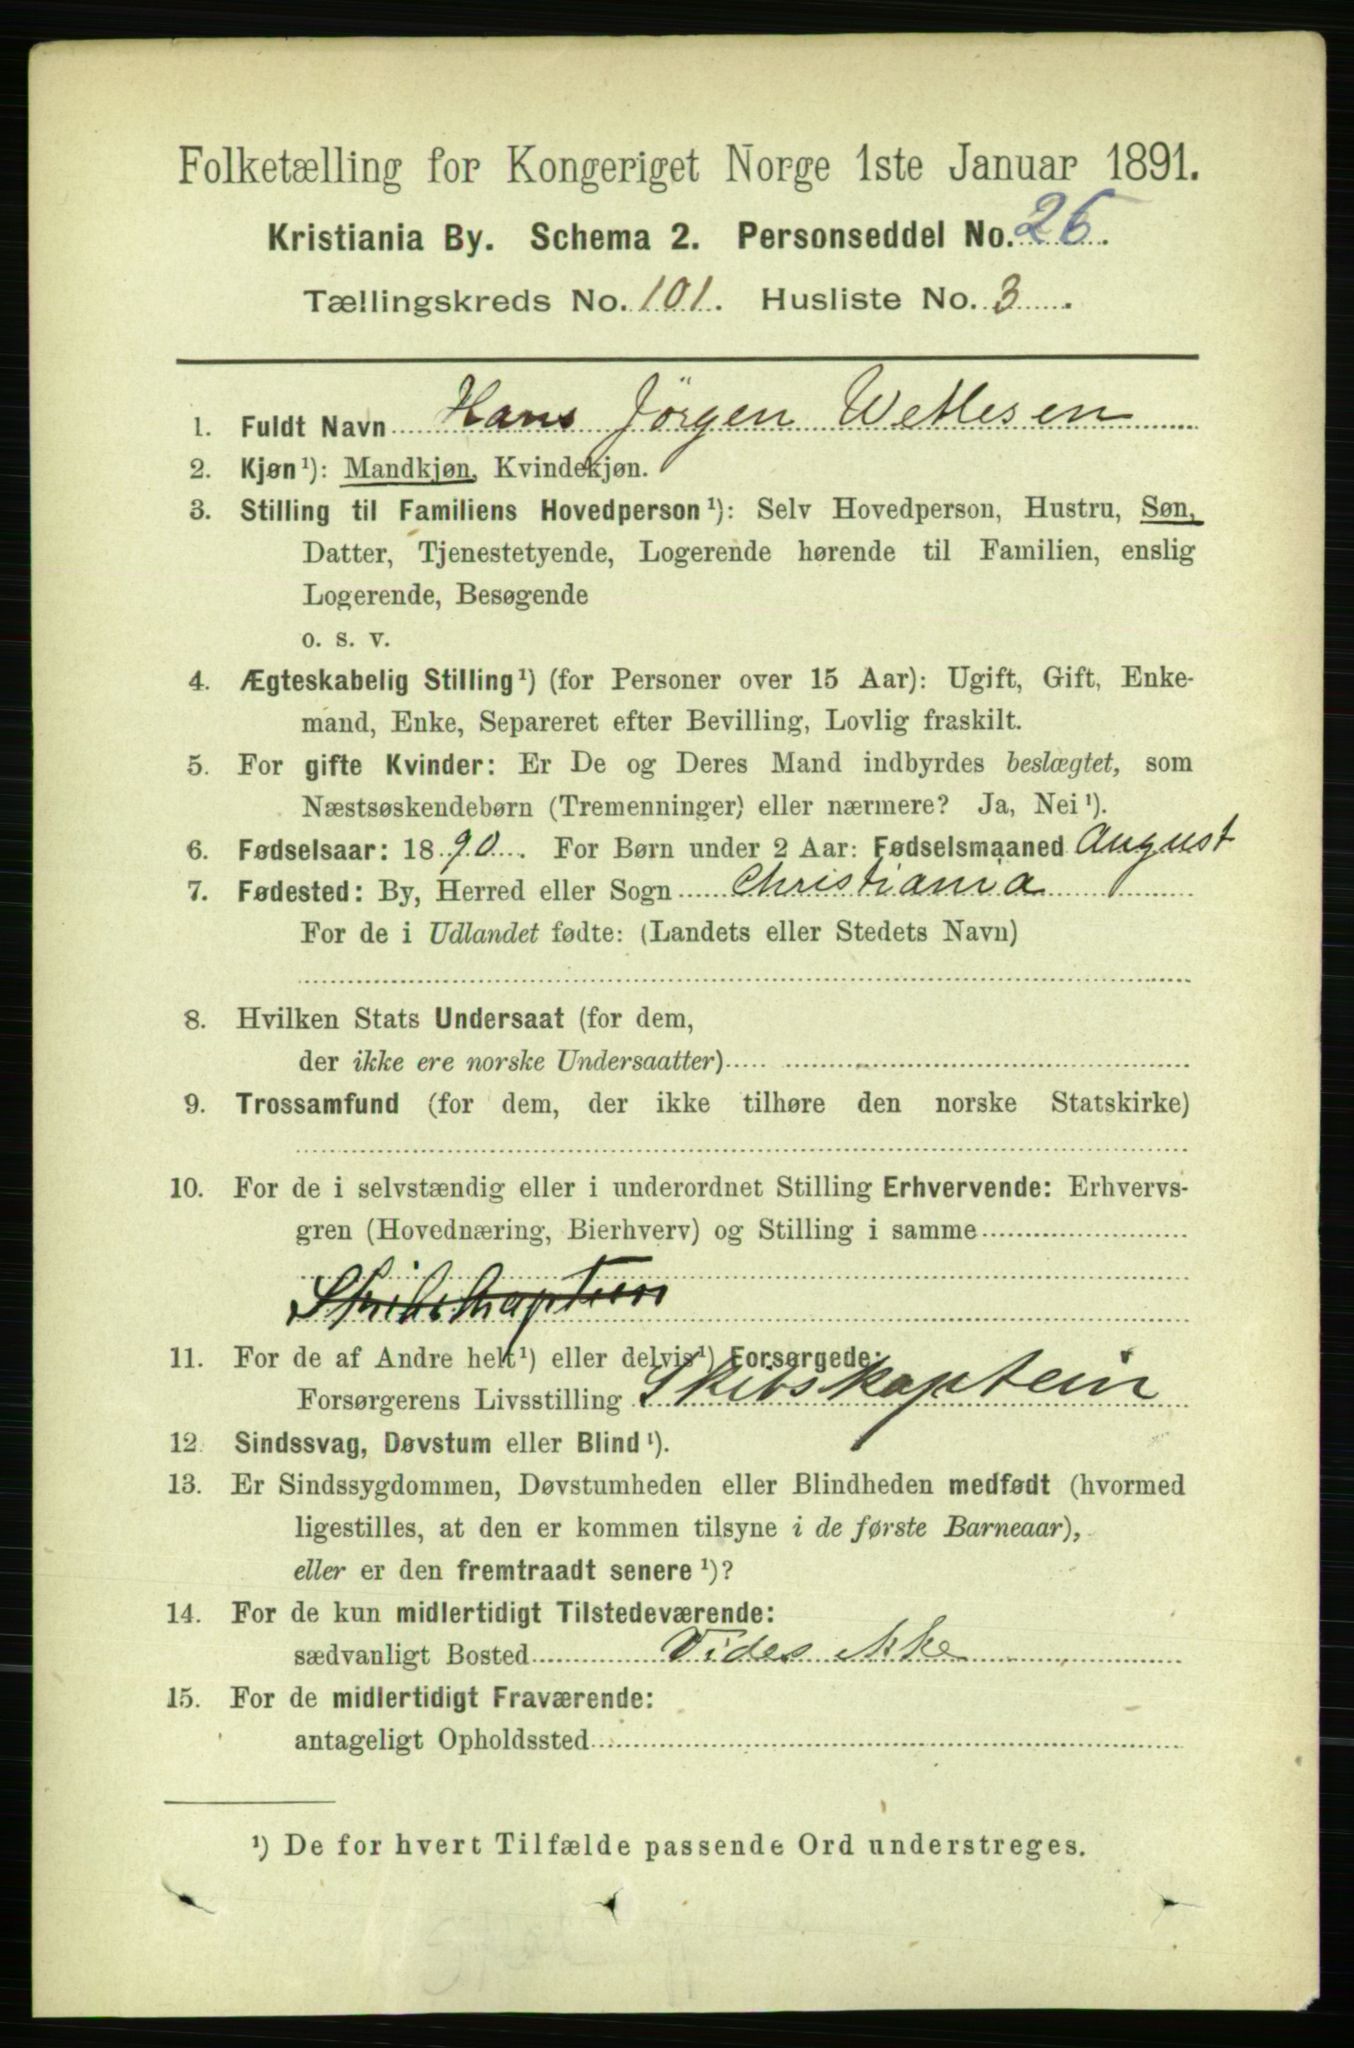 Folketælling for Kongeriget Norge 1ste Januar 1891.
Kristiania By. Schema 2. Personseddel No. 26.
Tællingskreds No. 101. Husliste No. 3.
1. Fuldt Navn Hans Jörgen Wetlesen
2. Kjøn¹): Mandkjøn, Kvindekjøn.
3. Stilling til Familiens Hovedperson¹): Selv Hovedperson, Hustru, Søn,
Datter, Tjenestetyende, Logerende hørende til Familien, enslig
Logerende, Besøgende
o. s. v.
4. Ægteskabelig Stilling¹) (for Personer over 15 Aar): Ugift, Gift, Enke-
mand, Enke, Separeret efter Bevilling, Lovlig fraskilt.
5. For gifte Kvinder: Er De og Deres Mand indbyrdes beslægtet, som
Næstsøskendebørn (Tremenninger) eller nærmere? Ja, Nei¹).
6. Fødselsaar: 1890. For Børn under 2 Aar: Fødselsmaaned August
7. Fødested: By, Herred eller Sogn Christiania
For de i Udlandet fødte: (Landets eller Stedets Navn)
8. Hvilken Stats Undersaat (for dem,
der ikke ere norske Undersaatter)
9. Trossamfund (for dem, der ikke tilhøre den norske Statskirke)
10. For de i selvstændig eller i underordnet Stilling Erhvervende: Erhvervs-
gren (Hovednæring, Bierhverv) og Stilling i samme
Skibskaptein
11. For de af Andre helt¹) eller delvis¹) Forsørgede:
Forsørgerens Livsstilling Skibskaptein
12. Sindssvag, Døvstum eller Blind¹).
13. Er Sindssygdommen, Døvstumheden eller Blindheden medfødt (hvormed
ligestilles, at den er kommen tilsyne i de første Barneaar),
eller er den fremtraadt senere¹)?
14. For de kun midlertidigt Tilstedeværende:
sædvanligt Bosted Vides ikke
15. For de midlertidigt Fraværende:
antageligt Opholdssted
¹) De for hvert Tilfælde passende Ord understreges.